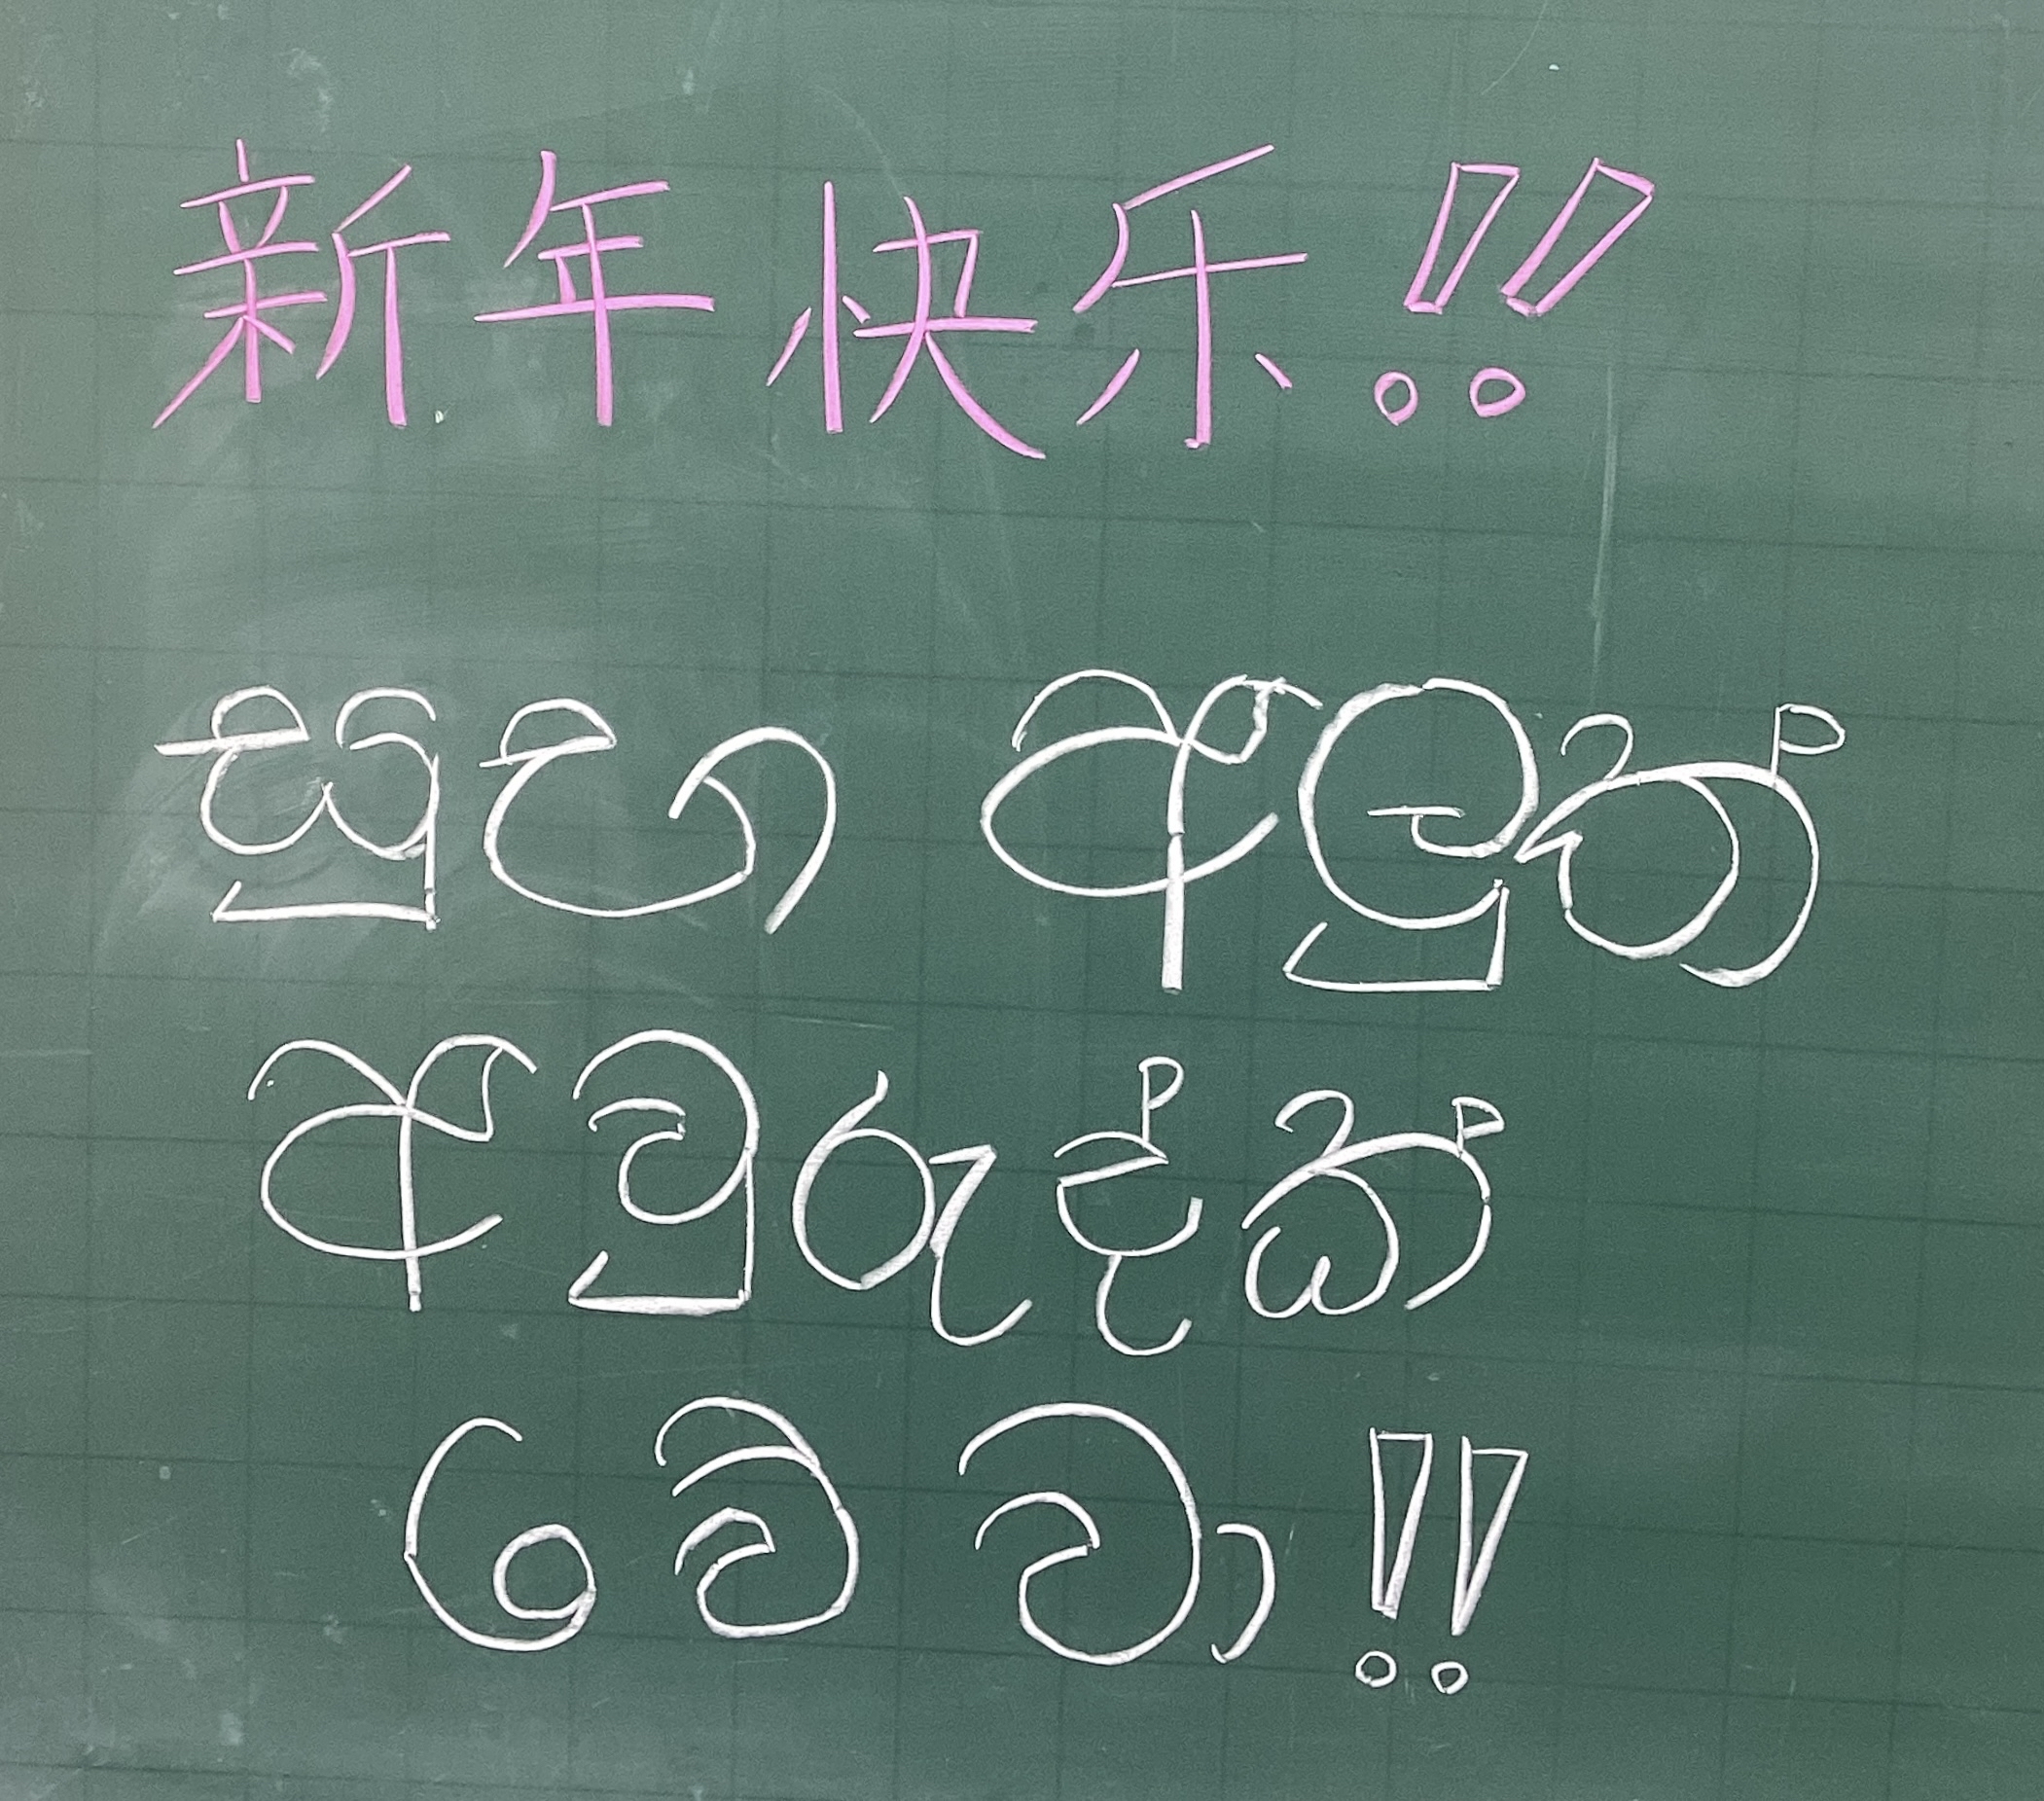 新年快乐!!
සුභ අලුත්
අවුරුද්ක්
වේවා!!